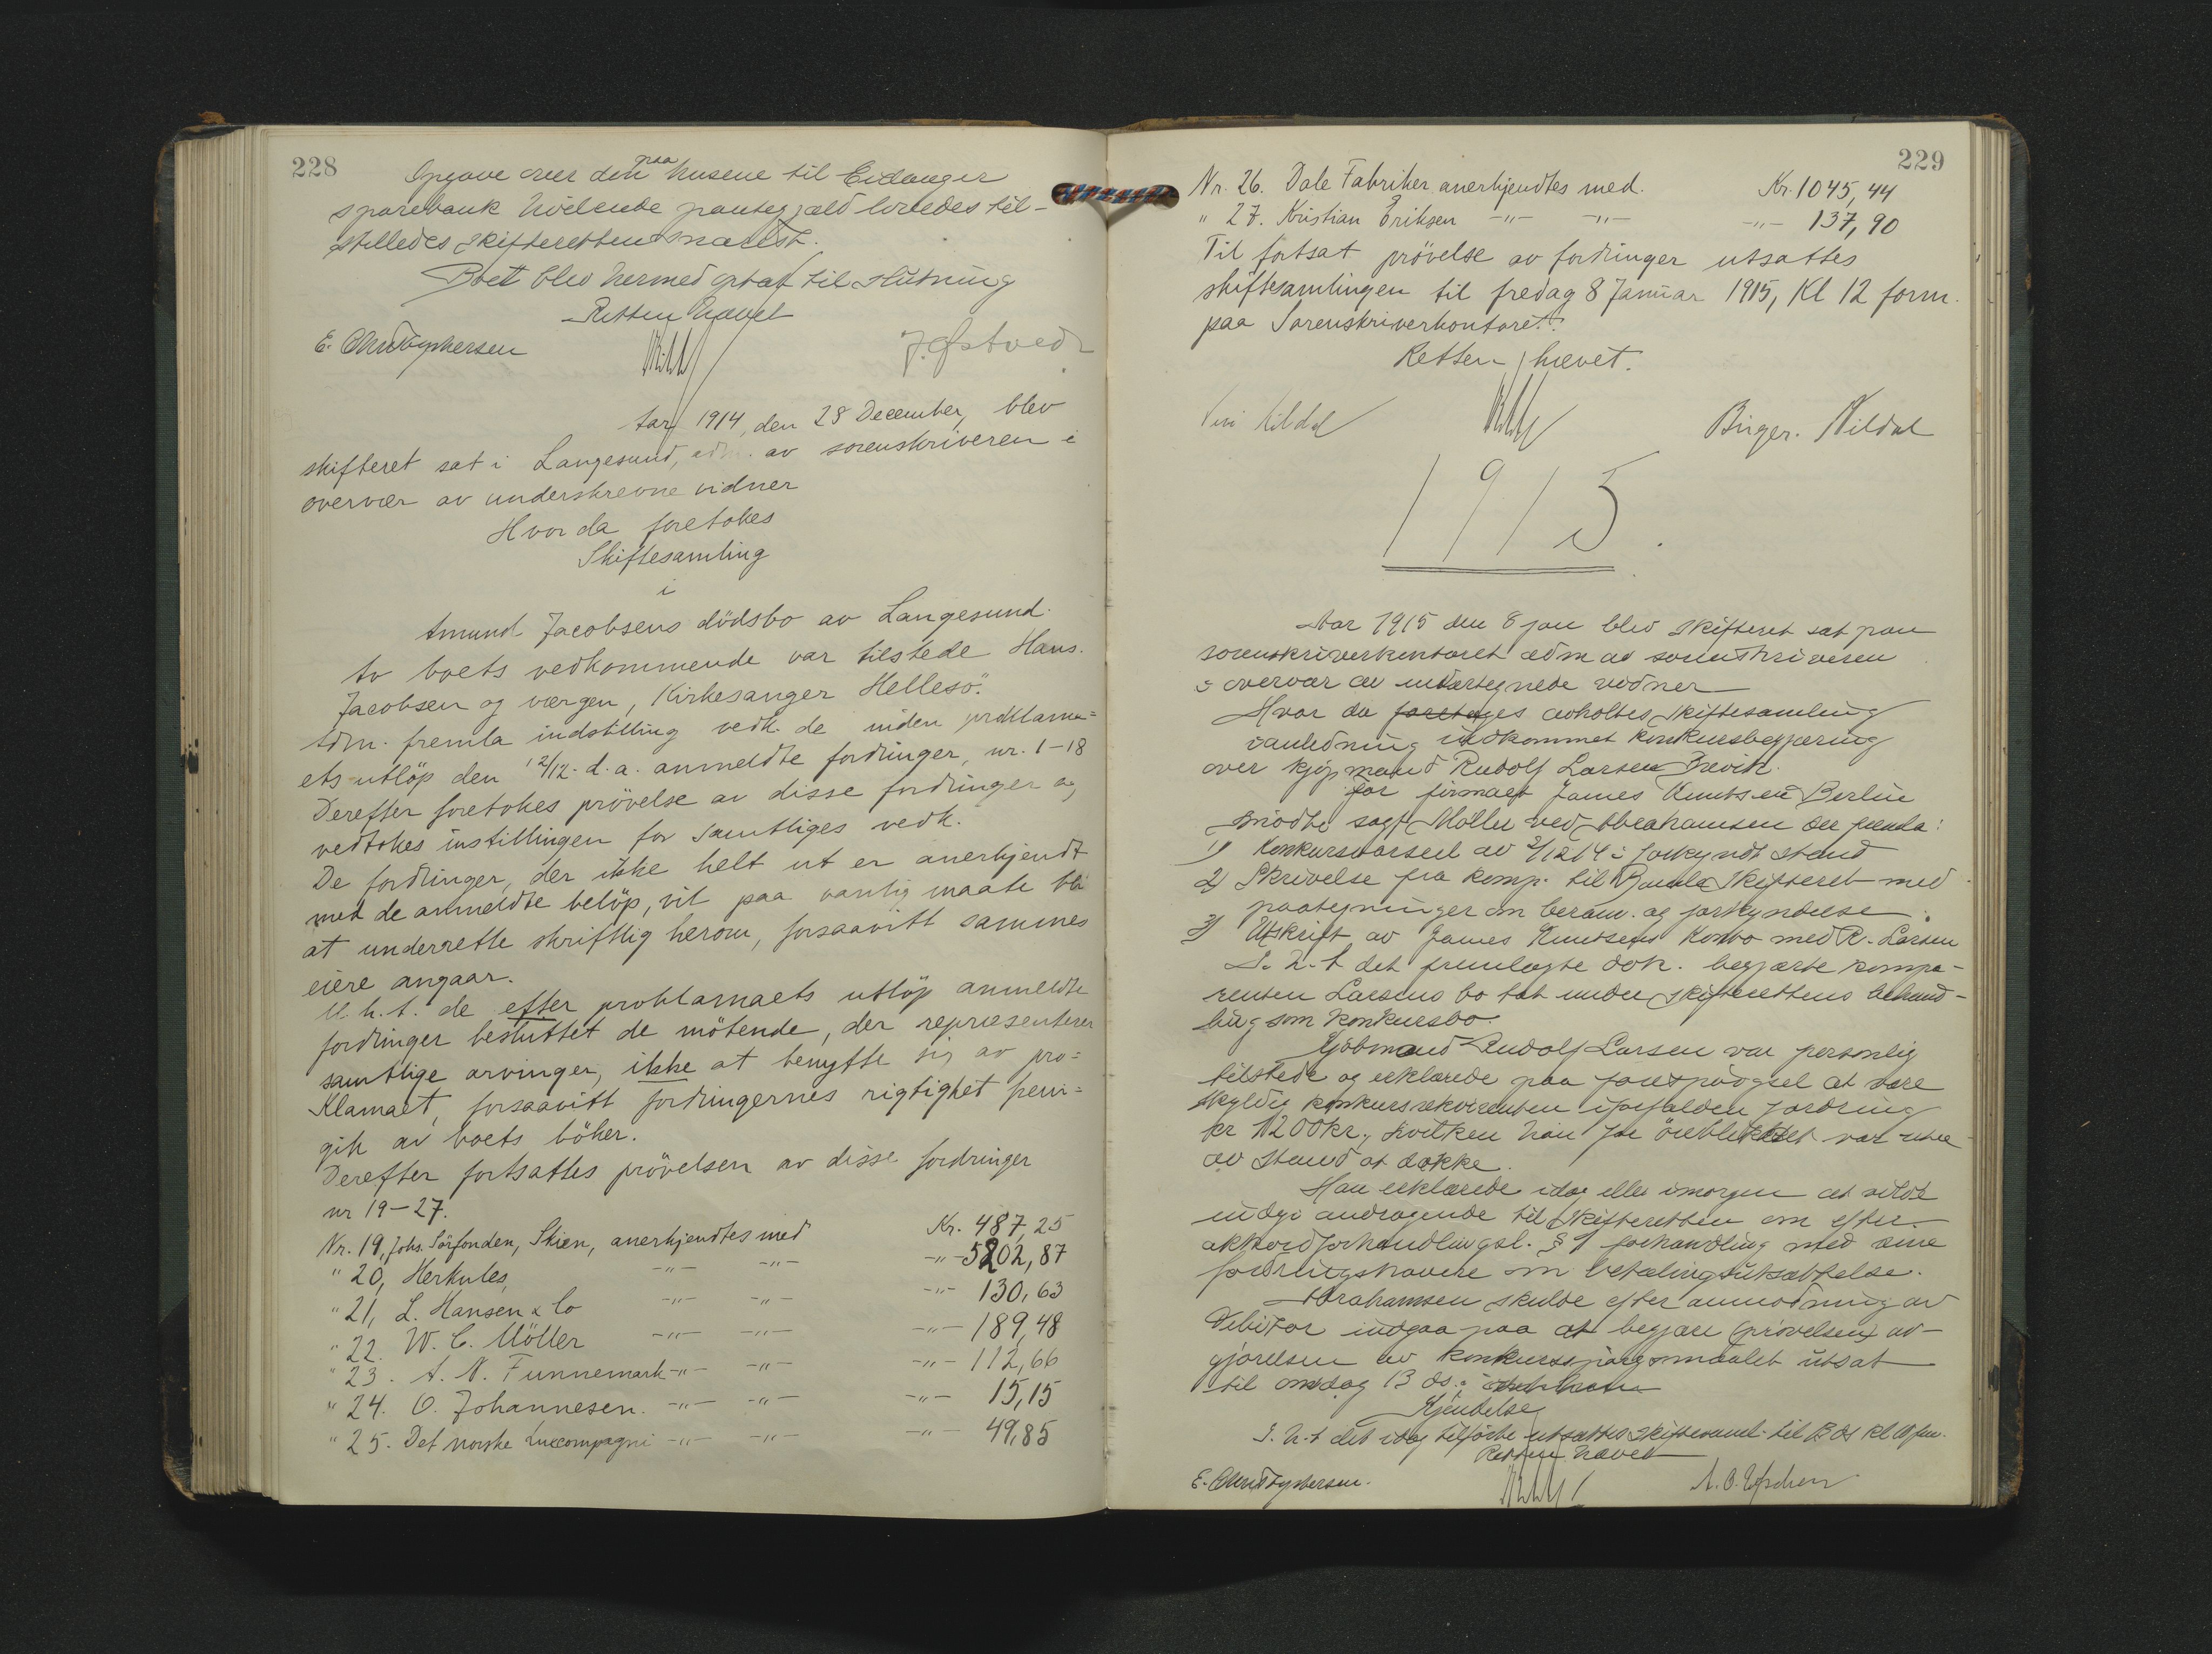 228
Opgave over den paa husene til Eidanger
sparebank hvilende pantegjæld lovedes til-
stilledes skifteretten snarest.
Boet blev hermed optat til slutning
Retten hævet
E. Christophersen
J. Østvedt
Aar 1914, den 28 December, blev
skifteret sat i Langesund, adm. av sorenskriveren i
overvær av underskrevne vidner
Hvor da foretokes
Skiftesamling
i
Amund Jacobsens dödsbo av Langesund.
Av boets vedkommende var tilstede Hans.
Jacobsen og værgen, Kirkesanger Hellesö.
Adm. fremla indstilling vedk. de inden proklama=
ets utlöp den 12/12. d.a. anmeldte fordringer, nr. 1-18
Derefter foretokes prövelse av disse fordringer og
vedtokes instillingen for samtliges vedk.
De fordringer, der ikke helt ut er anerkjendt
med de anmeldte belöp, vil paa vanlig maate bli
at underrette skriftlig herom, forsaavitt sammes
eiere angaar.
M.h.t. de efter proklamaets utlöp anmeldte
fordringer besluttet de mötende, der repræsenterer
samtlige arvinger, ikke at benytte sig av pro=
klamaet, forsaavitt fordringernes rigtighet frem=
gik av boets böker.
Derefter fortsattes prövelsen av disse fordringer
nr 19-27.
Nr. 19, Johs. Sörfonden, Skien, anerkjendtes med Kr. 487,25
" 20, Herkules, -"- -"- -"- 5202,87
" 21, L. Hansen & Co -"- -"- -"- 130,63
" 22. W. C. Möller -"- -"- -"- 189,48
" 23. A. N. Funnemark -"- -"- -"- 112,66
" 24. O. Johannesen. -"- -"- -"- 15,15
" 25. Det norske Luxcompagni -"- -"- -"- 49,85
229
Nr. 26. Dale Fabriker anerkjendtes med. Kr. 1045,44
" 27. Kristian Eriksen -"- -"- -"- 137,90
Til fortsat prövelse av fordringer utsattes
skiftesamlingen til fredag 8 Januar 1915, Kl 12 form.
paa Sorenskriverkontoret.
Retten hævet.
Kildal Birger. Kildal
1915.
Aar 1915 den 8 jan blev skifteret sat paa
sorenskriverkontoret adm av sorenskriveren
i overvær av undertegnede vidner
Hvor da foretages avholtes skiftesamling
i anledning indkommet konkursbegjæring
over kjøpmand Rudolf Larsen Brevik.
For firmaet James Knutsen Berlin
mödte sagf. Møller ved Abrahamsen der fremla:
1) Konkursvarsel av 2/12 14 i forkyndt stand
2) Skrivelse fra komp. til Bamle skifteret med
paategninger om beram. og forkyndelse.
3) Utskrift av James Knutsens Konto med R. Larsen
I. h. t det fremlagte dok. begjærte kompa-
renten Larsens bo tat under skifterettens behand-
ling som konkursbo.
Kjöbmand Rudolf Larsen var personlig
tilstede og erklærede paa forespörgsel at være
skyldig konkursrekvirenten forfalden fordring
kr 1200 kr., hvilken han for öieblikket var ute
av stand at dække.
Han erklærede idag eller imorgen at vilde
indgi andragende til skifteretten om efter
akkordforhandlingsl. § 1 forhandling med sine
fordringshavere om betalingsutsættelse.
Abrahamsen skulde efter anmodning av
Debitor indgaa paa at begjære (prövelsen) av-
gjörelsen av konkursspörgsmaalet utsat
til onsdag 13 ds.
Kjendelse
I. h. t det idag tilförte utsattes skiftesaml. til 13 ds kl
Retten hævet
E. Christophersen.